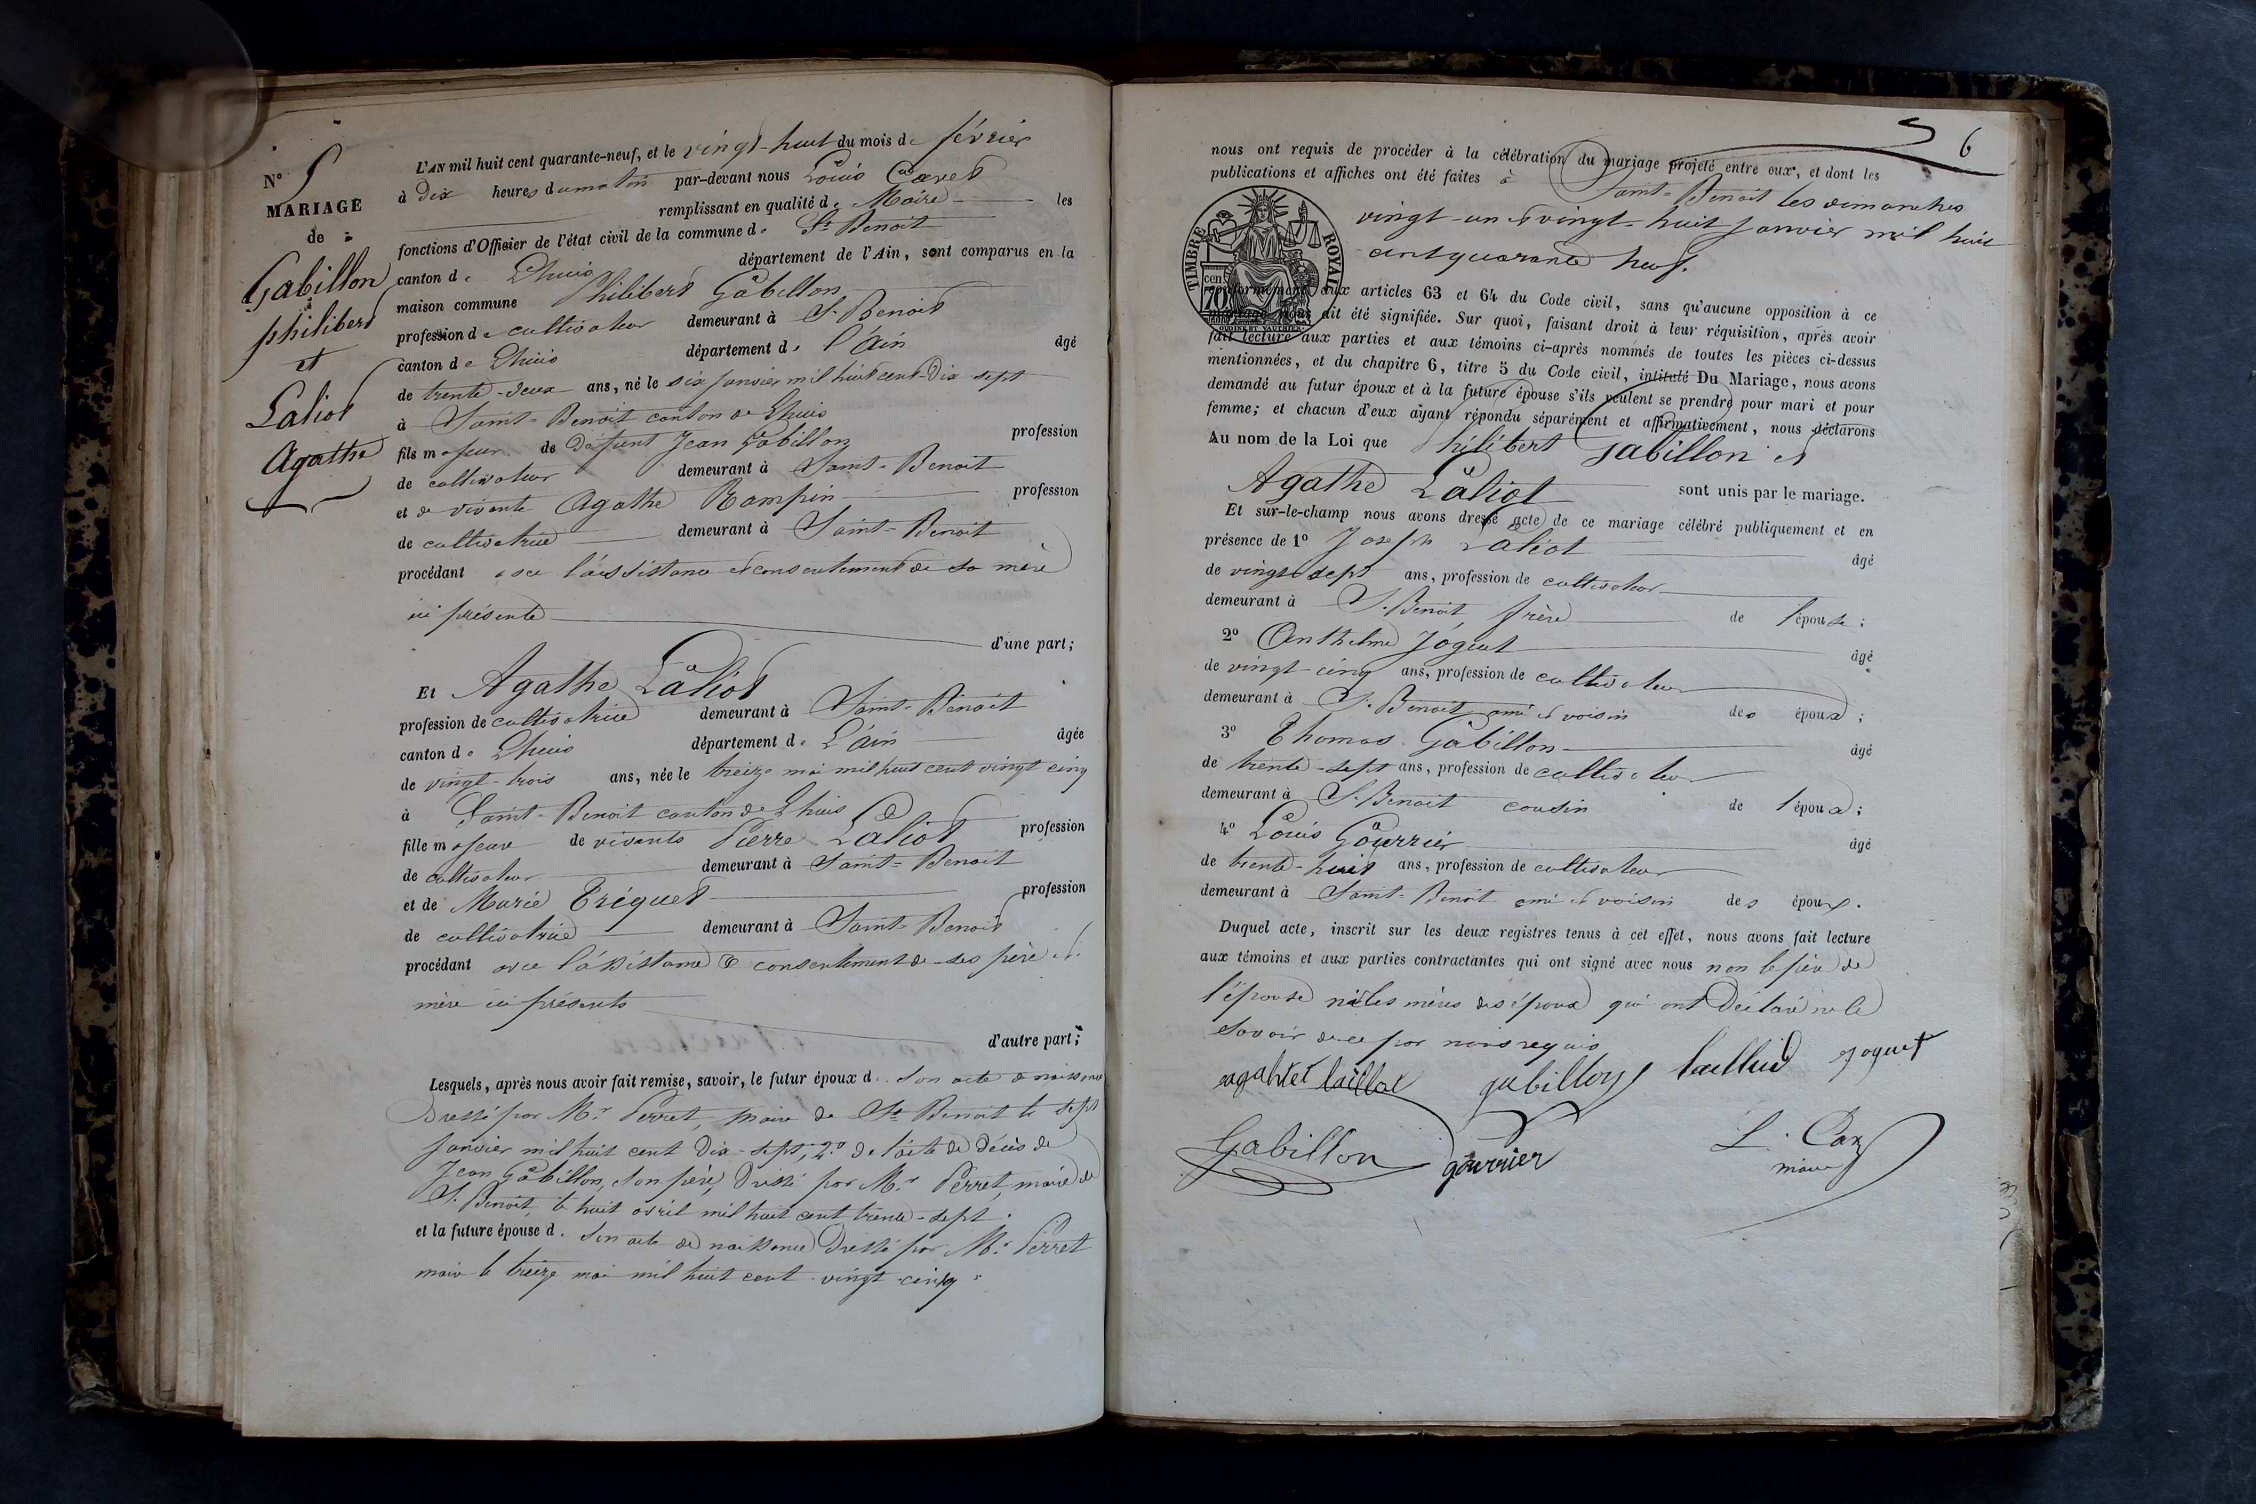 N° 5
MARIAGE
de
Gabillon
philibert
et
Laliot
Agathe
L'AN mil huit cent quarante-neuf, et le vingt-huit du mois de février
à dix heures du matin par-devant nous Louis
remplissant en qualité de Maire les
fonctions d'Officier de l'état civil de la commune de St Benoit
canton de Lhuis département de l'Ain, sont comparus en la
maison commune Philibert Gabillon
profession de cultivateur demeurant à St Benoit
canton de Lhuis département de l'Ain âgé
de trente-deux ans, né le six janvier mil huit cent dix sept
à Saint-Benoit canton de Lhuis
fils majeur de défunt Jean Gabillon profession
de cultivateur demeurant à Saint-Benoit
et de vivante Agathe Rampin profession
de cultivatrice demeurant à Saint-Benoit
procédant avec l'assistance et consentement de sa mère
ici présente
d'une part;
Et Agathe Laliot
profession de cultivatrice demeurant à Saint-Benoit
canton de Lhuis département de L'ain âgée
de vingt-trois ans, née le treize mai mil huit cent vingt cinq
à Saint-Benoit canton de Lhuis
fille majeure de vivants Pierre Laliot profession
de cultivateur demeurant à Saint-Benoit
et de Marie Tréguet profession
de cultivatrice demeurant à Saint-Benoit
procédant avec l'assistance & consentement de ses père et
mère ici présents
d'autre part;
Lesquels, après nous avoir fait remise, savoir, le futur époux de son acte de naissance
Dressé par Mr Perret, maire de St Benoit le sept
janvier mil huit cent dix-sept, 2° de l'acte de décès de
Jean Gabillon, son père, dressé par Mr Perret, maire de
St Benoit, le huit avril mil huit cent trente-sept.
et la future épouse d. son acte de naissance dressé par Mr Perret
maire le treize mai mil huit cent vingt-cinq
6
nous ont requis de procéder à la célébration du mariage projeté entre eux, et dont les
publications et affiches ont été faites à Saint-Benoit les dimanches
vingt-un et vingt-huit janvier mil huit
cent quarante neuf.
TIMBRE ROYAL
70 cen
conformément aux articles 63 et 64 du Code civil, sans qu'aucune opposition à ce
mariage nous ait été signifiée. Sur quoi, faisant droit à leur réquisition, après avoir
fait lecture aux parties et aux témoins ci-après nommés de toutes les pièces ci-dessus
mentionnées, et du chapitre 6, titre 5 du Code civil, intitulé Du Mariage, nous avons
demandé au futur époux et à la future épouse s'ils veulent se prendre pour mari et pour
femme; et chacun d'eux ayant répondu séparément et affirmativement, nous déclarons
Au nom de la Loi que Philibert Gabillon et
Agathe Laliot sont unis par le mariage.
Et sur-le-champ nous avons dressé acte de ce mariage célébré publiquement et en
présence de 1° Joseph Laliot âgé
de vingt-sept ans, profession de cultivateur
demeurant à St Benoit frère de l'épouse;
2° Anthelme Joguet âgé
de vingt-cinq ans, profession de cultivateur
demeurant à St Benoit ami et voisin des époux;
3° Thomas Gabillon âgé
de trente-sept ans, profession de cultivateur
demeurant à St Benoit cousin de l'époux;
4° Louis Gourrier âgé
de trente-huit ans, profession de cultivateur
demeurant à Saint-Benoit ami et voisin des époux.
Duquel acte, inscrit sur les deux registres tenus à cet effet, nous avons fait lecture
aux témoins et aux parties contractantes qui ont signé avec nous non le père de
l'épouse ni les mères des époux qui ont déclaré ne le
savoir de ce par nous requis
gabillon joguet
Gabillon gourrier
maire